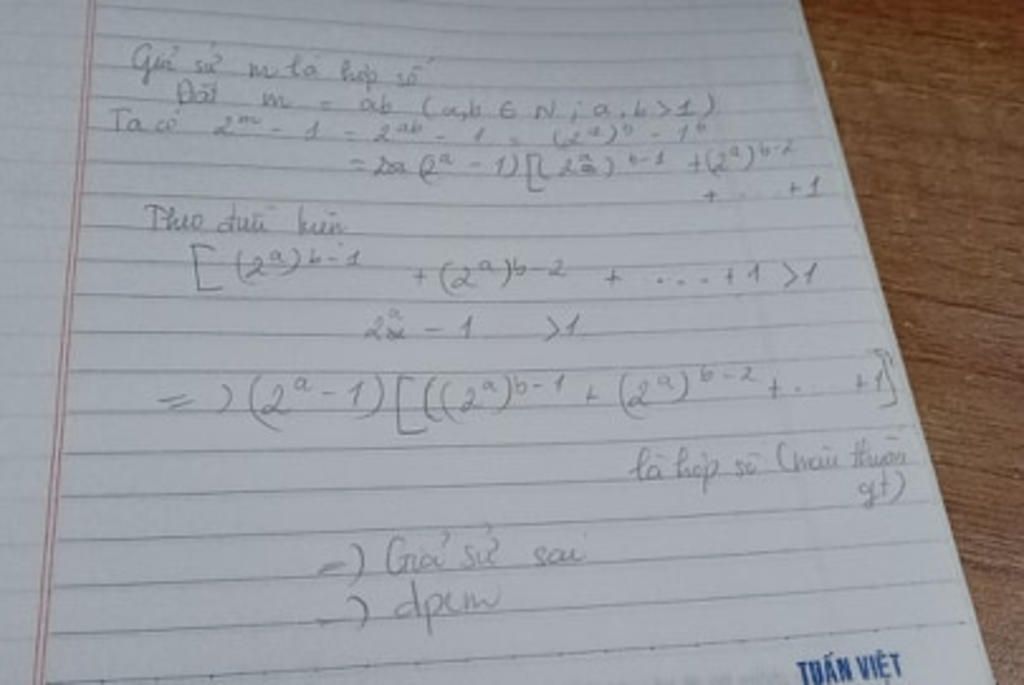 Giả sử m là hợp số
Đặt m = ab (a,b ∈ N ; a, b > 1)
Ta có 2^m - 1 = 2^{ab} - 1 = (2^a)^b - 1^b
= (2^a - 1)[(2^a)^{b-1} + (2^a)^{b-2}
+ ... + 1
Theo kiện
[(2^a)^{b-1} + (2^a)^{b-2} + .... + 1 > 1
2^a - 1 > 1
=> (2^a - 1)[((2^a)^{b-1} + (2^a)^{b-2} + ... + 1]
là hợp số (mâu thuẫn
gt)
=> Giả sử sai
=> dpcm
TUẤN VIỆT